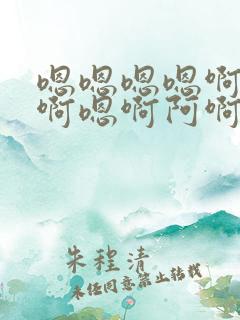 嗯嗯嗯嗯啊
啊嗯啊阿啊
朱程清
未经同意禁止转载